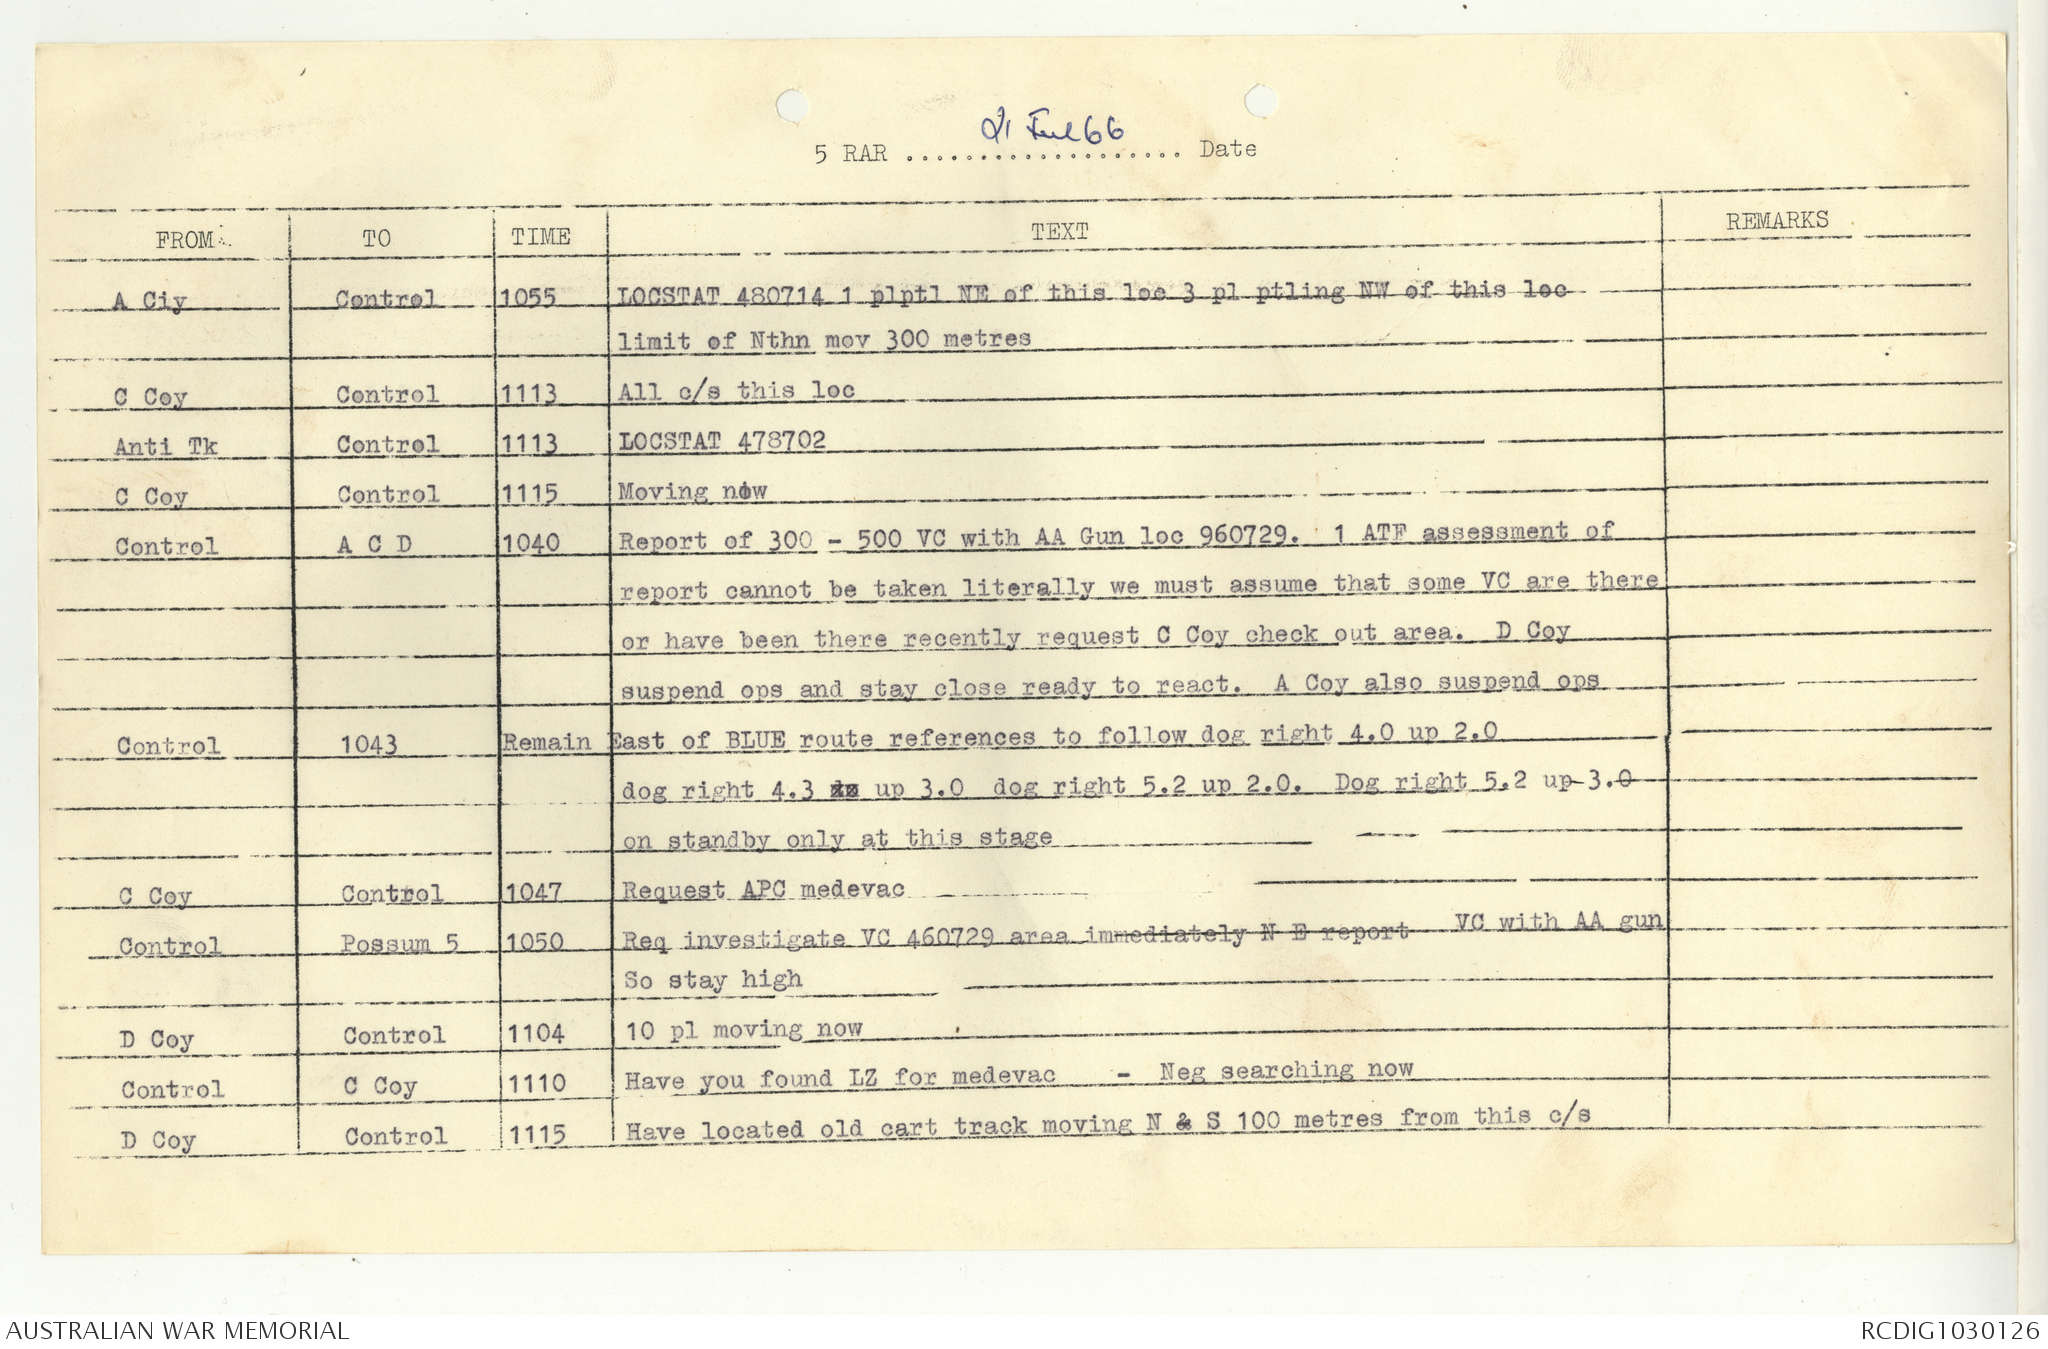 21 Jul 66
5 RAR ................... Date
FROM TO TIME TEXT REMARKS
A Ciy Control 1055 LOCSTAT 480714 1 plptl NE of this loc 3 pl ptling NW of this loc
limit of Nthn mov 300 metres
C Coy Control 1113 All c/s this loc
Anti Tk Control 1113 LOCSTAT 478702
C Coy Control 1115 Moving now
Control A C D 1040 Report of 300 - 500 VC with AA Gun loc 960729. 1 ATF assessment of
report cannot be taken literally we must assume that some VC are there
or have been there recently request C Coy check out area. D Coy
suspend ops and stay close ready to react. A Coy also suspend ops
Control 1043 Remain East of BLUE route references to follow dog right 4.0 up 2.0
dog right 4.3 up 3.0 dog right 5.2 up 2.0. Dog right 5.2 up 3.0
on standby only at this stage
C Coy Control 1047 Request APC medevac
Control Possum 5 1050 Req investigate VC 460729 area immediately N E report VC with AA gun
So stay high
D Coy Control 1104 10 pl moving now
Control C Coy 1110 Have you found LZ for medevac - Neg searching now
D Coy Control 1115 Have located old cart track moving N & S 100 metres from this c/s
AUSTRALIAN WAR MEMORIAL RCDIG1030126